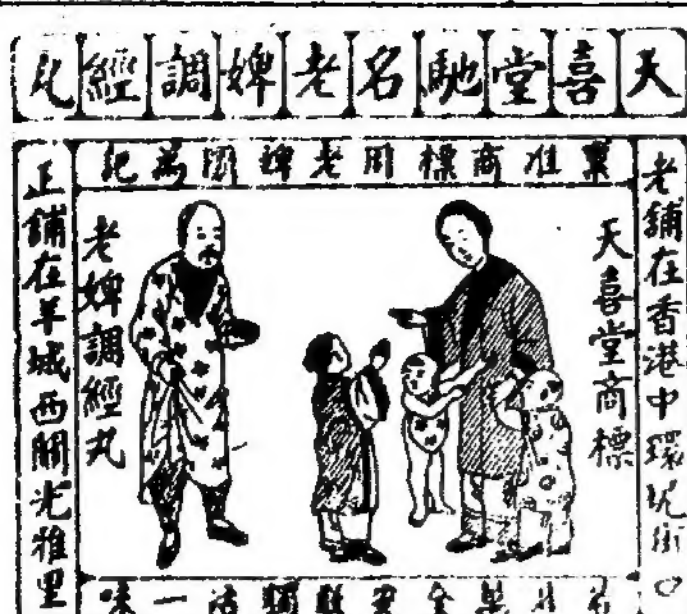 天喜堂馳名老婢調經丸
稟准商標用老婢圖為記
老舖在香港中環
天喜堂商標
老婢調經丸
正舖在羊城西關光雅里